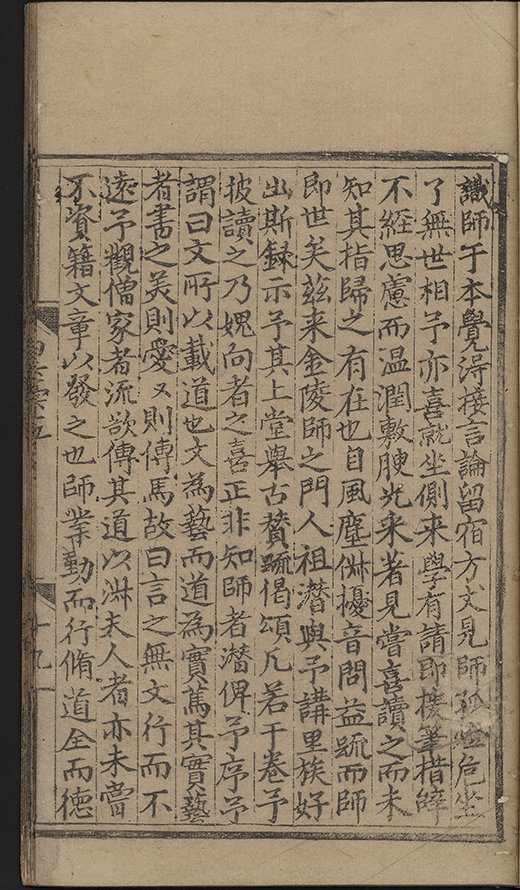 識師于本覺淂接言論留宿方丈見師孤燈危坐
了無世相予亦喜就坐側来學有請即援筆措辝
不經思慮而温潤敷腴光来著見嘗喜讀之而未
知其指歸之有在也自風塵俶擾音問益踈而師
即世矣兹来金陵師之門人祖潛與予講里族好
出斯録示予其上堂舉古賛䟽偈頌凢若干卷予
披讀之乃媿向者之喜正非知師者潛俾予序予
謂曰文所以載道也文為藝而道為實篤其實藝
者書之美則愛〻則傳焉故曰言之無文行而不
逺予觀僧家者流欲傳其道以淑夫人者亦未嘗
不資籍文章以發之也師業勤而行脩道全而徳
十九